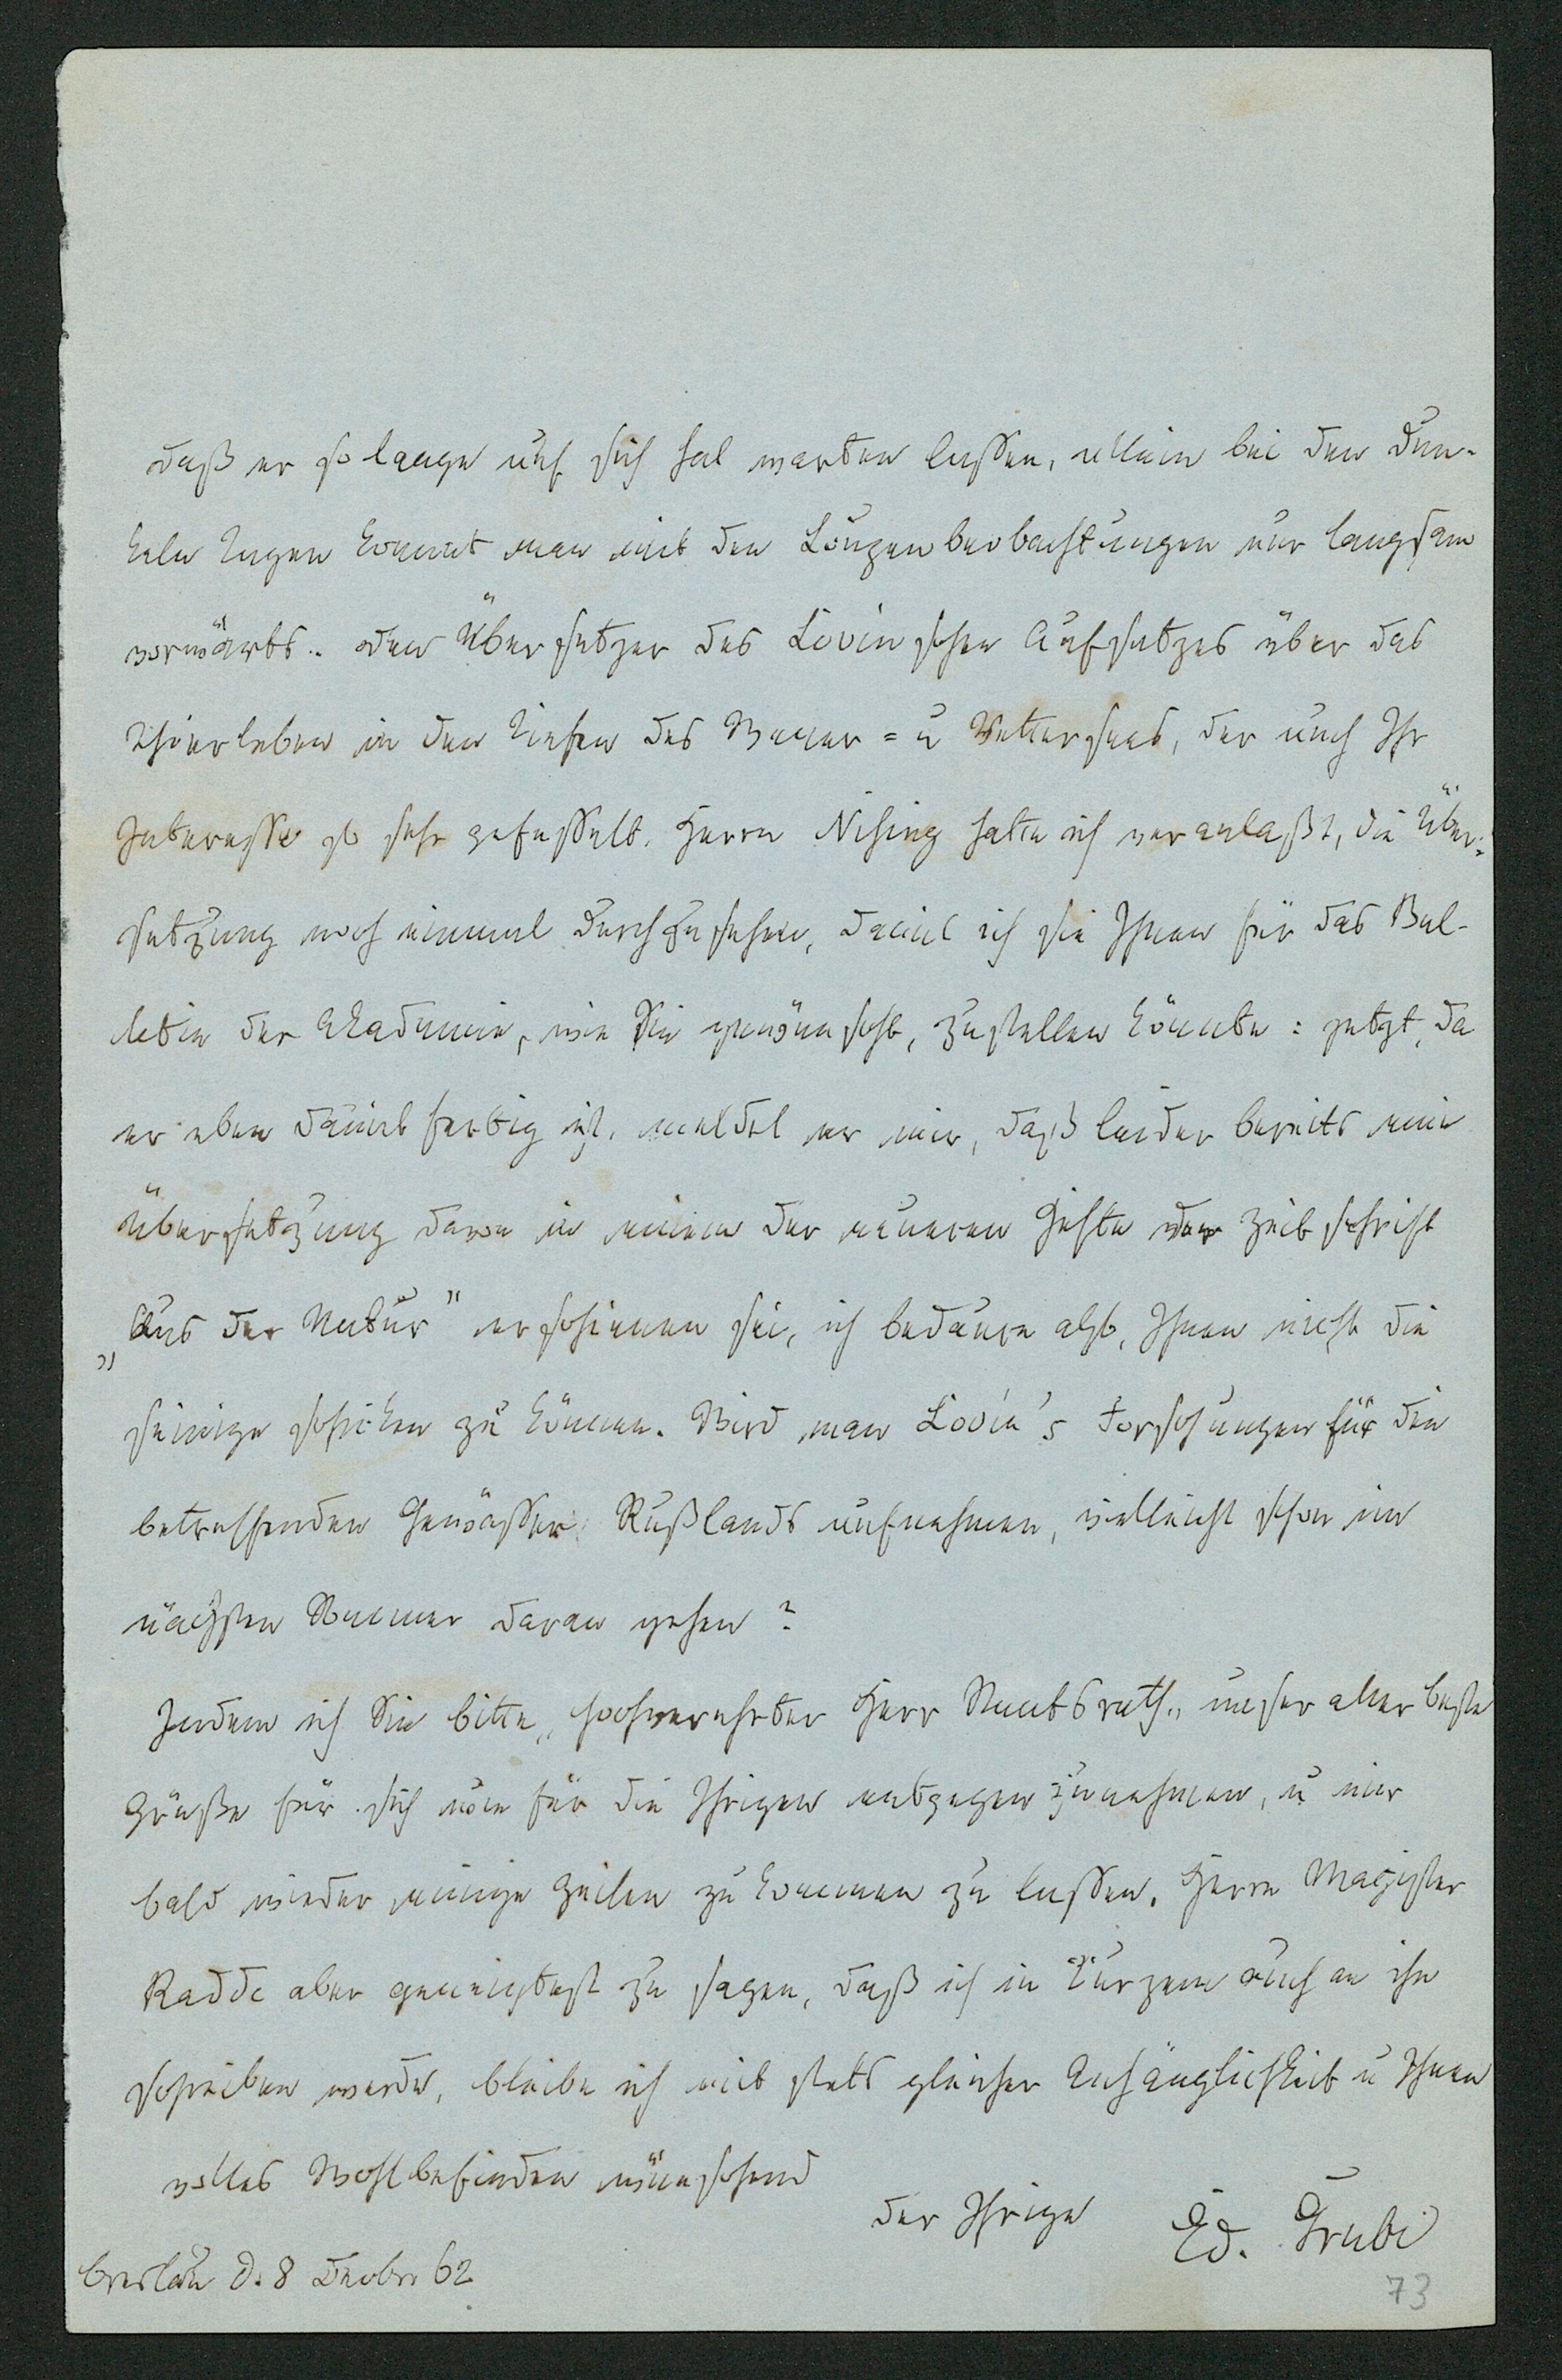 daß er so lange auf sich hat warten lassen, allein bei den dun-
keln Tagen kommt man mit den Loupenbeobachtungen nur langsam
vorwärts. den Übersetzer des Lovénschen Aufsatzes über das
Thierleben in den Tiefen des Wener= u Wettersees, der auch Ihr
Interesse so sehr gefesselt, Herrn Nising hatte ich veranlaßt, die Über=
setzung noch einmal durchzusehen, damit ich sie Ihnen für das Bul-
letin der Akademie, wie Sie gewünscht, zustellen könnte: jetzt, da
er eben damit fertig ist, meldet er mir, daß leider bereits eine
Übersetzung davon in einem der neueren Hefte der Zeitschrift
„Aus der Natur" erschienen sei, ich bedaure also, Ihnen nicht die
seinige schicken zu können. Wird man Lovén's Forschungen für die
betreffenden Gewässer Rußlands aufnehmen, vielleicht schon im
nächsten Sommer daran gehen?
Indem ich Sie bitte, hochverehrter Herr Staatsrath, unser aller beste
Grüße für sich wie für die Ihrigen entgegenzunehmen, u mir
bald wieder einige Zeilen zukommen zu lassen, Herrn Magister
Radde aber geneigtest zu sagen, daß ich in Kurzem auch an ihn
schreiben werde, bleibe ich mit stets gleicher Anhänglichkeit u Ihnen
volles Wohlbefinden wünschend
der Ihrige Ed. Grube
Breslau d. 8 Decbr. 62
73